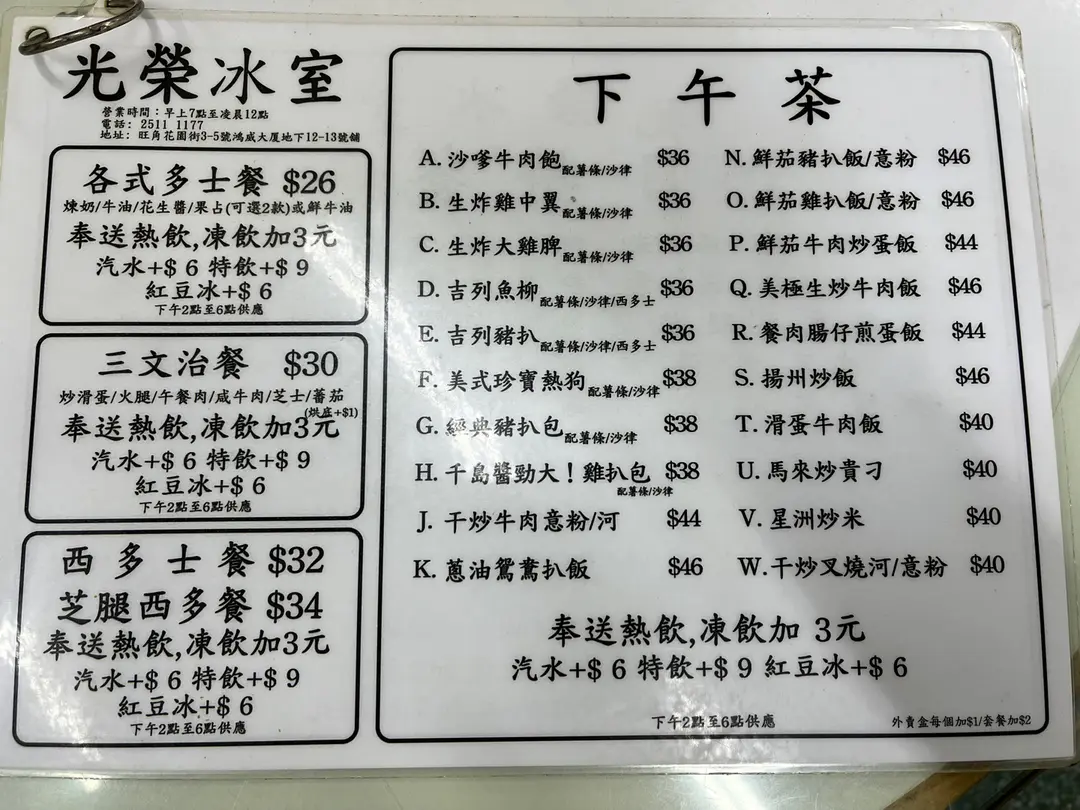 光榮冰室
營業時間：早上7點至凌晨12點
電話: 2511 1177
地址: 旺角花園街3-5號鴻威大厦地下12-13號舖
各式多士餐 $26
煉奶/牛油/花生醬/果占(可選2款)或鮮牛油
奉送熱飲,凍飲加3元
汽水+$ 6 特飲+$ 9
紅豆冰+$ 6
下午2點至6點供應
三文治餐 $30
炒滑蛋/火腿/午餐肉/咸牛肉/芝士/蕃茄
(烘底+$1)
奉送熱飲,凍飲加3元
汽水+$ 6 特飲+$ 9
紅豆冰+$ 6
下午2點至6點供應
西多士餐 $32
芝腿西多餐 $34
奉送熱飲,凍飲加3元
汽水+$ 6 特飲+$ 9
紅豆冰+$ 6
下午2點至6點供應
下午茶
A. 沙嗲牛肉飽配薯條/沙律 $36
B. 生炸雞中翼配薯條/沙律 $36
C. 生炸大雞脾配薯條/沙律 $36
D. 吉列魚柳配薯條/沙律/西多士 $36
E. 吉列豬扒配薯條/沙律/西多士 $36
F. 美式珍寶熱狗配薯條/沙律 $38
G. 經典豬扒包配薯條/沙律 $38
H. 千島醬勁大！雞扒包 $38
配薯條/沙律
J. 干炒牛肉意粉/河 $44
K. 蔥油鴛鴦扒飯 $46
N. 鮮茄豬扒飯/意粉 $46
O. 鮮茄雞扒飯/意粉 $46
P. 鮮茄牛肉炒蛋飯 $44
Q. 美極生炒牛肉飯 $46
R. 餐肉腸仔煎蛋飯 $44
S. 揚州炒飯 $46
T. 滑蛋牛肉飯 $40
U. 馬來炒貴刁 $40
V. 星洲炒米 $40
W.干炒叉燒河/意粉 $40
奉送熱飲,凍飲加 3元
汽水+$ 6 特飲+$ 9 紅豆冰+$ 6
下午2點至6點供應
外賣盒每個加$1/套餐加$2